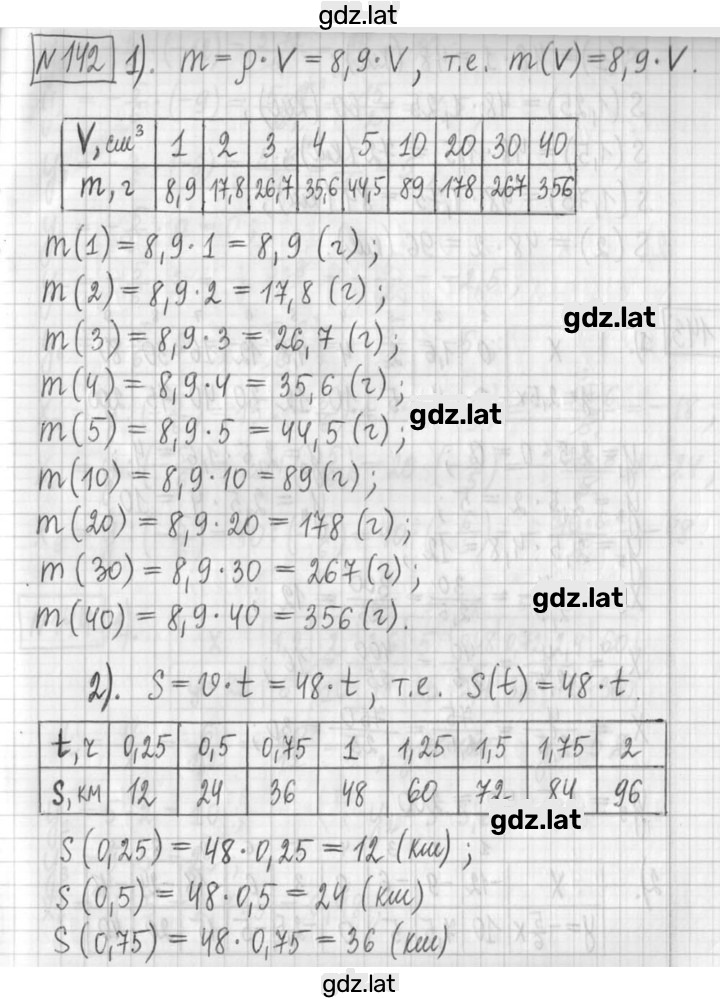 gdz.lat
№142 1). m = ρ·V = 8,9·V, т.е. m(V)=8,9·V.
V, см³ 1 2 3 4 5 10 20 30 40
m, г 8,9 17,8 26,7 35,6 44,5 89 178 267 356
m(1) = 8,9·1 = 8,9 (г);
m(2) = 8,9·2 = 17,8 (г);
gdz.lat
m(3) = 8,9·3 = 26,7 (г);
m(4) = 8,9·4 = 35,6 (г);
gdz.lat
m(5) = 8,9·5 = 44,5 (г);
m(10) = 8,9·10 = 89(г);
m(20) = 8,9·20 = 178 (г);
m(30) = 8,9·30 = 267(г);
gdz.lat
m(40) = 8,9·40 = 356(г).
2). S = v·t = 48·t, т.е. S(t) = 48·t.
t, ч 0,25 0,5 0,75 1 1,25 1,5 1,75 2
S, км 12 24 36 48 60 72 84 96
gdz.lat
S(0,25) = 48·0,25 = 12 (км);
S(0,5) = 48·0,5 = 24 (км)
S(0,75) = 48·0,75 = 36 (км)
gdz.lat